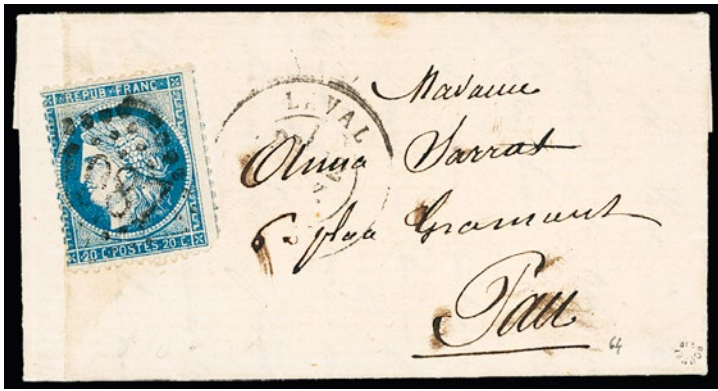 REPUB·FRANC·
20 C·POSTES·20 C·
LAVAL
Madame
Anna Sarrat
6 place Gramont
Pau
64